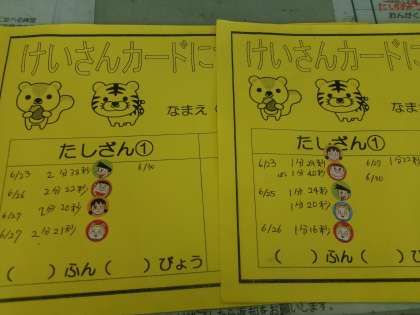 けいさんカードに
なまえ（
たしざん①
6/23 2分28秒
6/30
6/26 2分22秒
6/27 2分20秒
6/27 2分21秒
（ ）ふん（ ）びょう
けいさんカードに
なまえ
たしざん①
6/23 1分29秒
1分40秒
6/27 1分22秒
6/30
6/25 1分24秒
1分20秒
6/26 1分16秒
（ ）ふん（ ）びょう
お願いします。